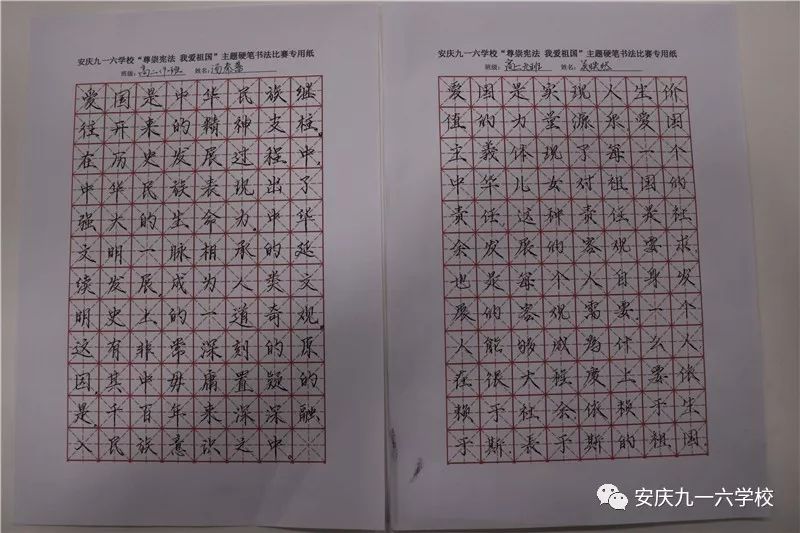 安庆九一六学校“尊崇宪法 我爱祖国”主题硬笔书法比赛专用纸
班级: 姓名:
爱国是中华民族继
往开来的精神支柱,
在历史发展过程中,
中华民族表现出了
强大的生命力,中华
文明一脉相承的延
续发展,成为人类文
明史上的一道奇观,
这有非常深刻的原
因,其中毋庸置疑的
是,千百年来深深融
入民族意识之中。
安庆九一六学校“尊崇宪法 我爱祖国”主题硬笔书法比赛专用纸
班级: 姓名:
爱国是实现人生价
值的力量源泉,爱国
主義体现了每一个
中华儿女对祖国的
责任,这种责任是社
会发展的客观要求
也是每个人自身发
展的客观需要,一个
人能够成為什么人
在很大程度上要依
赖于社会依赖于生
于斯,長于斯的祖国.
安庆九一六学校